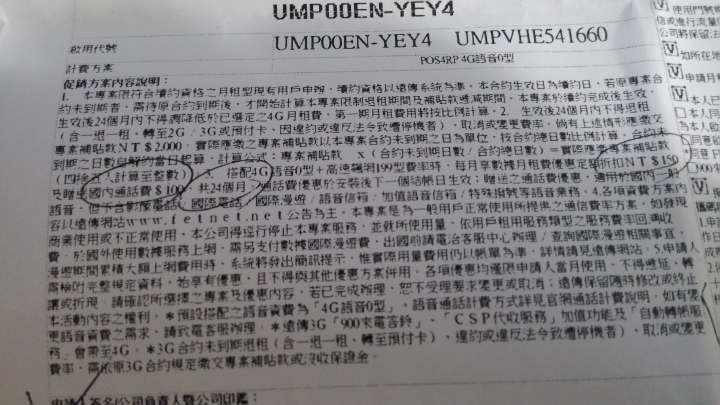 UMP00EN-YEY4
啟用代號 UMP00EN-YEY4 UMPVHE541660
計費方案 POS4RP 4G語音0型
促銷方案內容說明：
1. 本專案限符合續約資格之月租型現有用戶申辦，續約資格以遠傳系統為準。本合約生效日為續約日，若原專案合
約未到期者，需待原合約到期後，才開始計算本專案限制退租期間及補貼款遞減期間。本專案於續約完成後生效，
生效後24個月內不得調降低於已選定之4G月租費，第一期月租費用將按比例計算。2. 生效後24個月內不得退租
（含一退一租、轉至2G/3G或預付卡、因違約或違反法令致遭停機者）、取消或變更費率，倘有上述情形應繳交
專案補貼款NT$2,000，實際應繳之專案補貼款以本專案合約未到期之日為單位，按合約總日數比例計算，合約未
到期之日數自解約當日起算，計算公式：專案補貼款 x（合約未到期日數/合約總日數）=實際應繳專案補貼款
（四捨五入計算至整數）。3. 搭配4G語音0型+高速飆網199型費率時，每月享數據月租費優惠定額折扣NT$150
及贈送國內通話費$100，共24個月，通話費優惠於安裝後下一個結帳日生效；贈送之通話費優惠，適用於國內一般
語音，但不含影像電話/國際電話/國際漫遊/語音信箱/加值語音信箱/特殊撥號等語音業務。4.各項資費方案內
容以遠傳網站www.fetnet.net公告為主。本專案是為一般用戶正常使用所提供之通信費率方案，如發現
商業使用或不正常使用，本公司得逕行停止本專案服務，並就所使用量，依用戶租用服務類型之服務費率回溯收
費。於國外使用數據服務上網，需另支付數據國際漫遊費，出國前請電洽客服中心辦理/查詢國際漫遊相關事宜。
漫遊期間累積大額上網費用時，系統將發出簡訊提示，惟實際用量費用仍以帳單為準，詳情請見遠傳網站。5.申請人
需檢附完整規定資料，始享有優惠，且不得與其他優惠方案併用。各項優惠均僅限申請人當月使用，不得遞延、轉
讓或折現，請確認所選擇之專案及優惠內容，若已完成辦理，恕不受理要求變更或取消；遠傳保留隨時修改或終止
本活動內容之權利。＊預設搭配之語音資費為「4G語音0型」。語音通話計費方式詳見官網通話計費說明，如有變
更語音資費之需求，請致電客服辦理。＊遠傳3G「900來電答鈴」、「CSP代收服務」加值功能及「自動轉帳服
務」會帶至4G。＊3G合約未到期退租（含一退一租、轉至預付卡）、違約或違反法令致遭停機者）、取消或變更
費率，需依原3G合約規定繳交專案補貼款或沒收保證金。
申請人簽名/公司負責人暨公司印鑑：